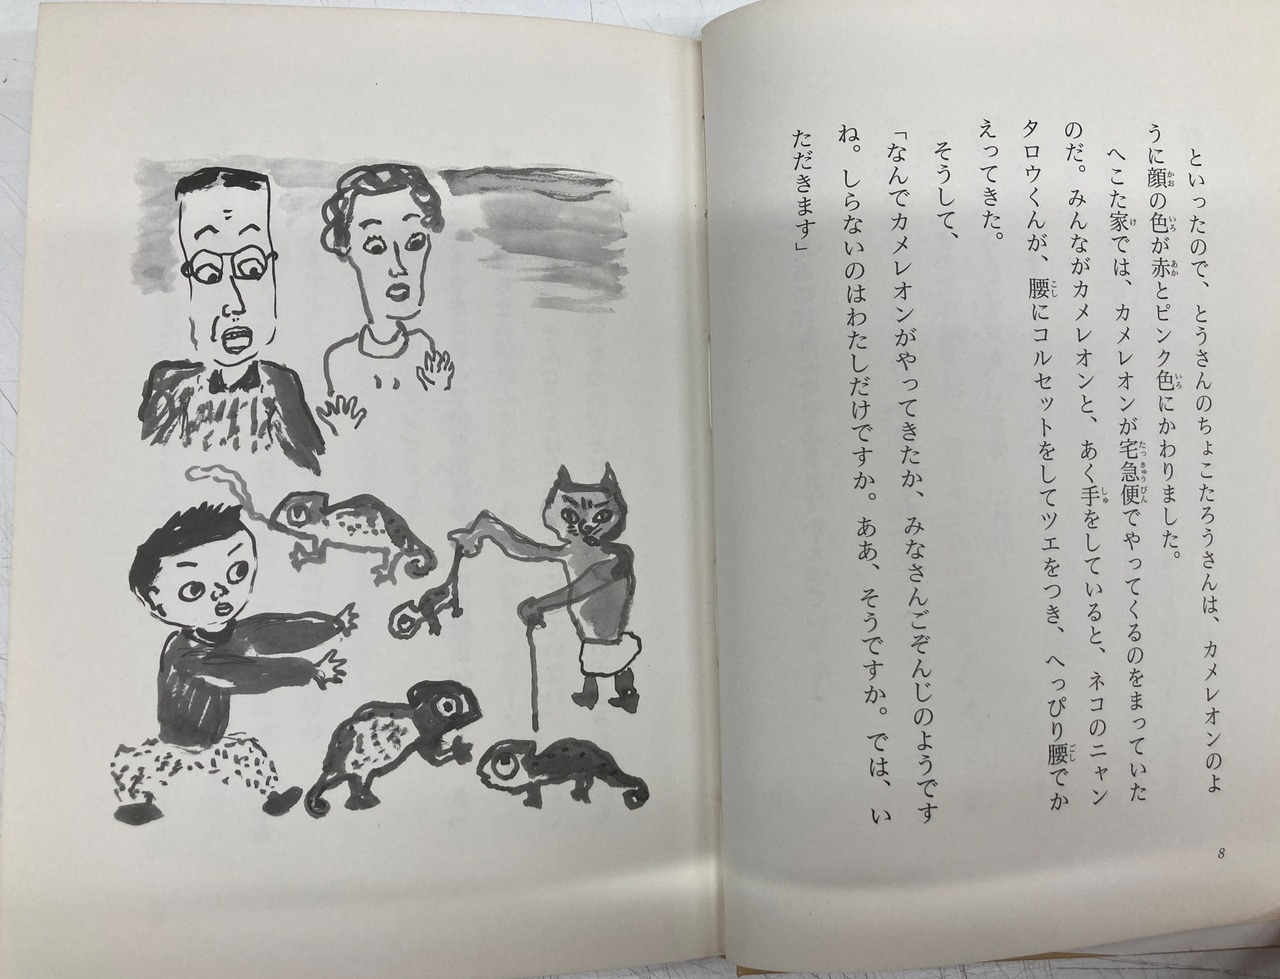 といったので、とうさんのちょこたろうさんは、カメレオンのよ
うに顔の色が赤とピンク色にかわりました。
へこた家では、カメレオンが宅急便でやってくるのをまっていた
のだ。みんながカメレオンと、あく手をしていると、ネコのニャン
タロウくんが、腰にコルセットをしてツエをつき、へっぴり腰でか
えってきた。
そうして、
「なんでカメレオンがやってきたか、みなさんごぞんじのようです
ね。しらないのはわたしだけですか。ああ、そうですか。では、い
ただきます」
8